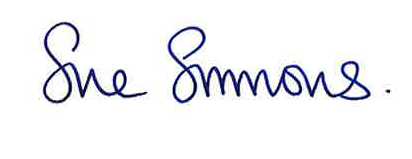 Sue Simmons.